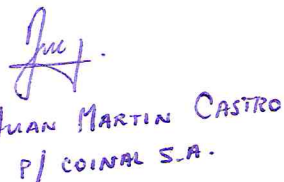 JUAN MARTIN CASTRO
P/ COINAL S.A.